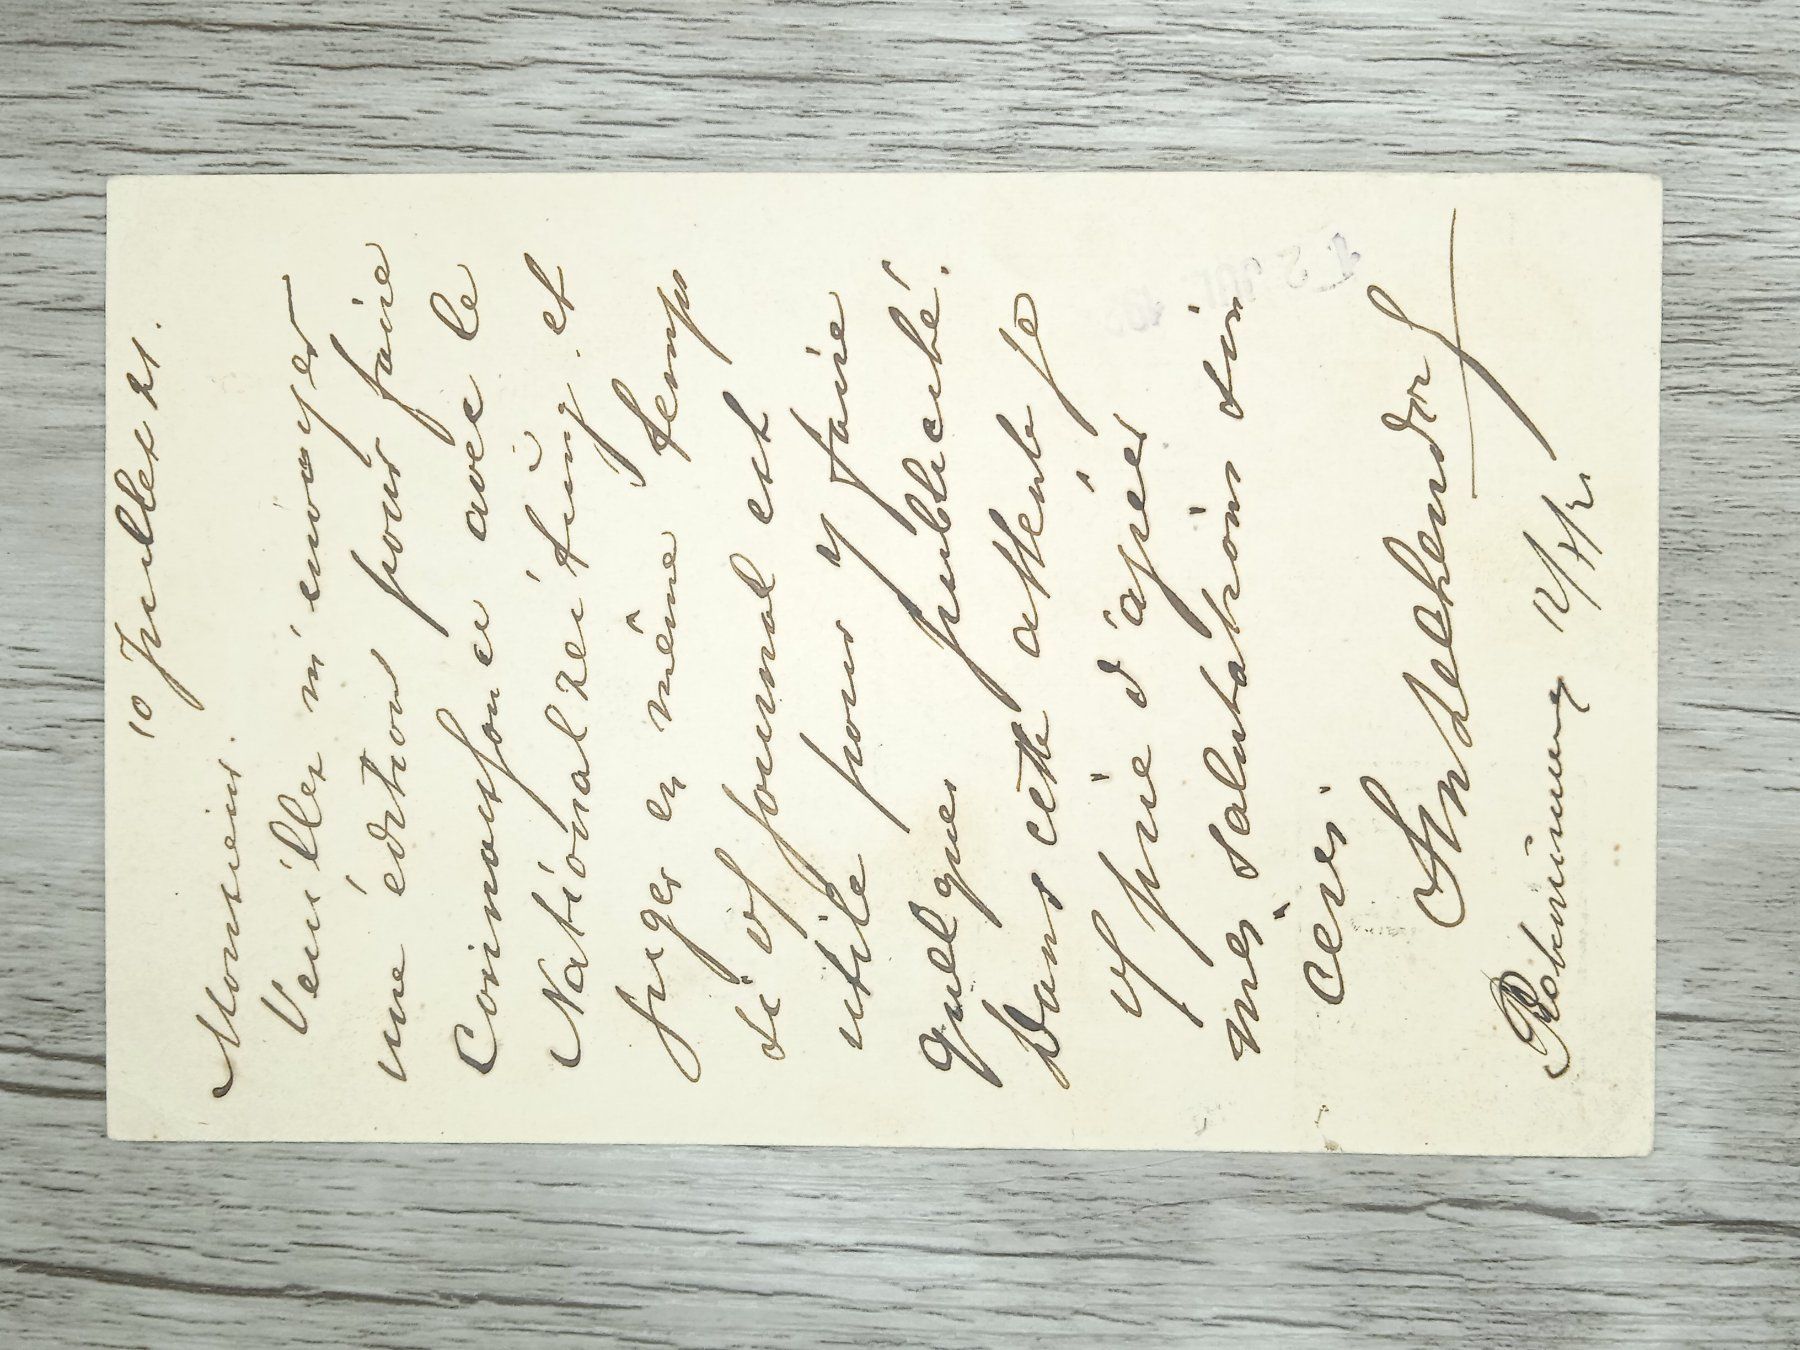 10 Juillet 21.
Monsieur.
Veuillez m'envoyer
une édition pour faire
Connaissance avec le
National Zeitung. et
juger en même temp
si ce journal est
utile pour y faire
quelques publicité.
Dans cette attente je
vs prie d'agréer
mes salutations sin
cères.
12/7/21
12 JUL.